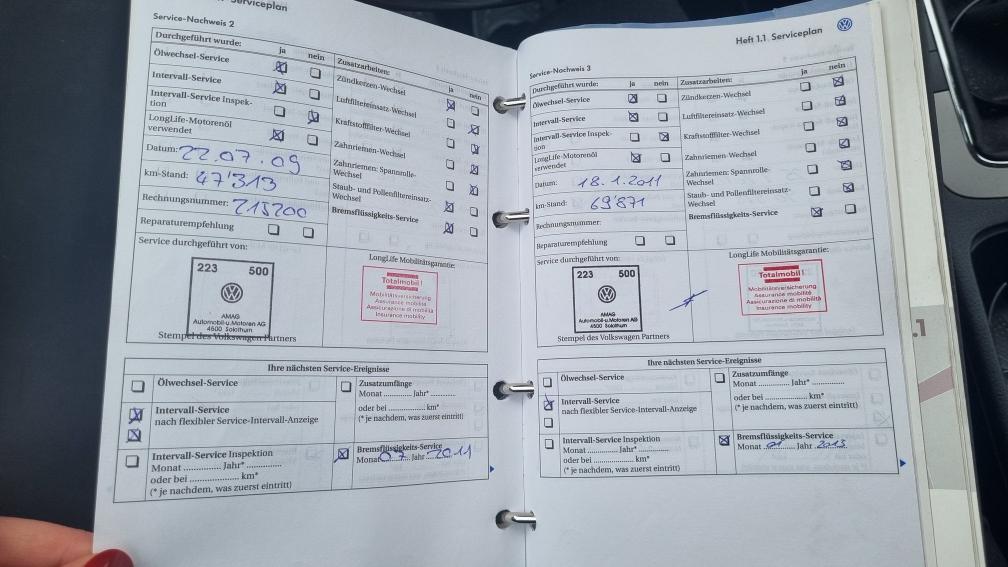 Serviceplan
Service-Nachweis 2
Durchgeführt wurde:
ja
nein
Ölwechsel-Service
Intervall-Service
Intervall-Service Inspek-
tion
LongLife-Motorenöl
verwendet
Datum: 22.07.09
km-Stand: 47'313
Rechnungsnummer: 215200
Reparaturempfehlung
Zusatzarbeiten:
ja
nein
Zündkerzen-Wechsel
Luftfiltereinsatz-Wechsel
Kraftstofffilter-Wechsel
Zahnriemen-Wechsel
Zahnriemen: Spannrolle-
Wechsel
Staub- und Pollenfiltereinsatz-
Wechsel
Bremsflüssigkeits-Service
Service durchgeführt von:
223 500
AMAG
Automobil-u.Motoren AG
4500 Solothurn
Stempel des Volkswagen Partners
LongLife Mobilitätsgarantie:
Totalmobil!
Mobilitätsversicherung
Assurance mobilité
Assicurazione di mobilità
Insurance mobility
Ihre nächsten Service-Ereignisse
Ölwechsel-Service
Intervall-Service
nach flexibler Service-Intervall-Anzeige
Intervall-Service Inspektion
Monat .............. Jahr* ..............
oder bei .................... km*
(* je nachdem, was zuerst eintritt)
Zusatzumfänge
Monat ............ Jahr* ............
oder bei .................. km*
(* je nachdem, was zuerst eintritt)
Bremsflüssigkeits-Service
Monat 07 Jahr 2011
Heft 1.1 Serviceplan
Service-Nachweis 3
Durchgeführt wurde:
ja
nein
Ölwechsel-Service
Intervall-Service
Intervall-Service Inspek-
tion
LongLife-Motorenöl
verwendet
Datum: 18.1.2011
km-Stand: 69'871
Rechnungsnummer:
Reparaturempfehlung
Zusatzarbeiten:
ja
nein
Zündkerzen-Wechsel
Luftfiltereinsatz-Wechsel
Kraftstofffilter-Wechsel
Zahnriemen-Wechsel
Zahnriemen: Spannrolle-
Wechsel
Staub- und Pollenfiltereinsatz-
Wechsel
Bremsflüssigkeits-Service
Service durchgeführt von:
223 500
AMAG
Automobil-u.Motoren AG
4500 Solothurn
Stempel des Volkswagen Partners
LongLife Mobilitätsgarantie:
Totalmobil!
Mobilitätsversicherung
Assurance mobilité
Assicurazione di mobilità
Insurance mobility
Ihre nächsten Service-Ereignisse
Ölwechsel-Service
Intervall-Service
nach flexibler Service-Intervall-Anzeige
Intervall-Service Inspektion
Monat .............. Jahr* ..............
oder bei .................... km*
(* je nachdem, was zuerst eintritt)
Zusatzumfänge
Monat ............ Jahr* ............
oder bei .................. km*
(* je nachdem, was zuerst eintritt)
Bremsflüssigkeits-Service
Monat 01 Jahr 2013
.1